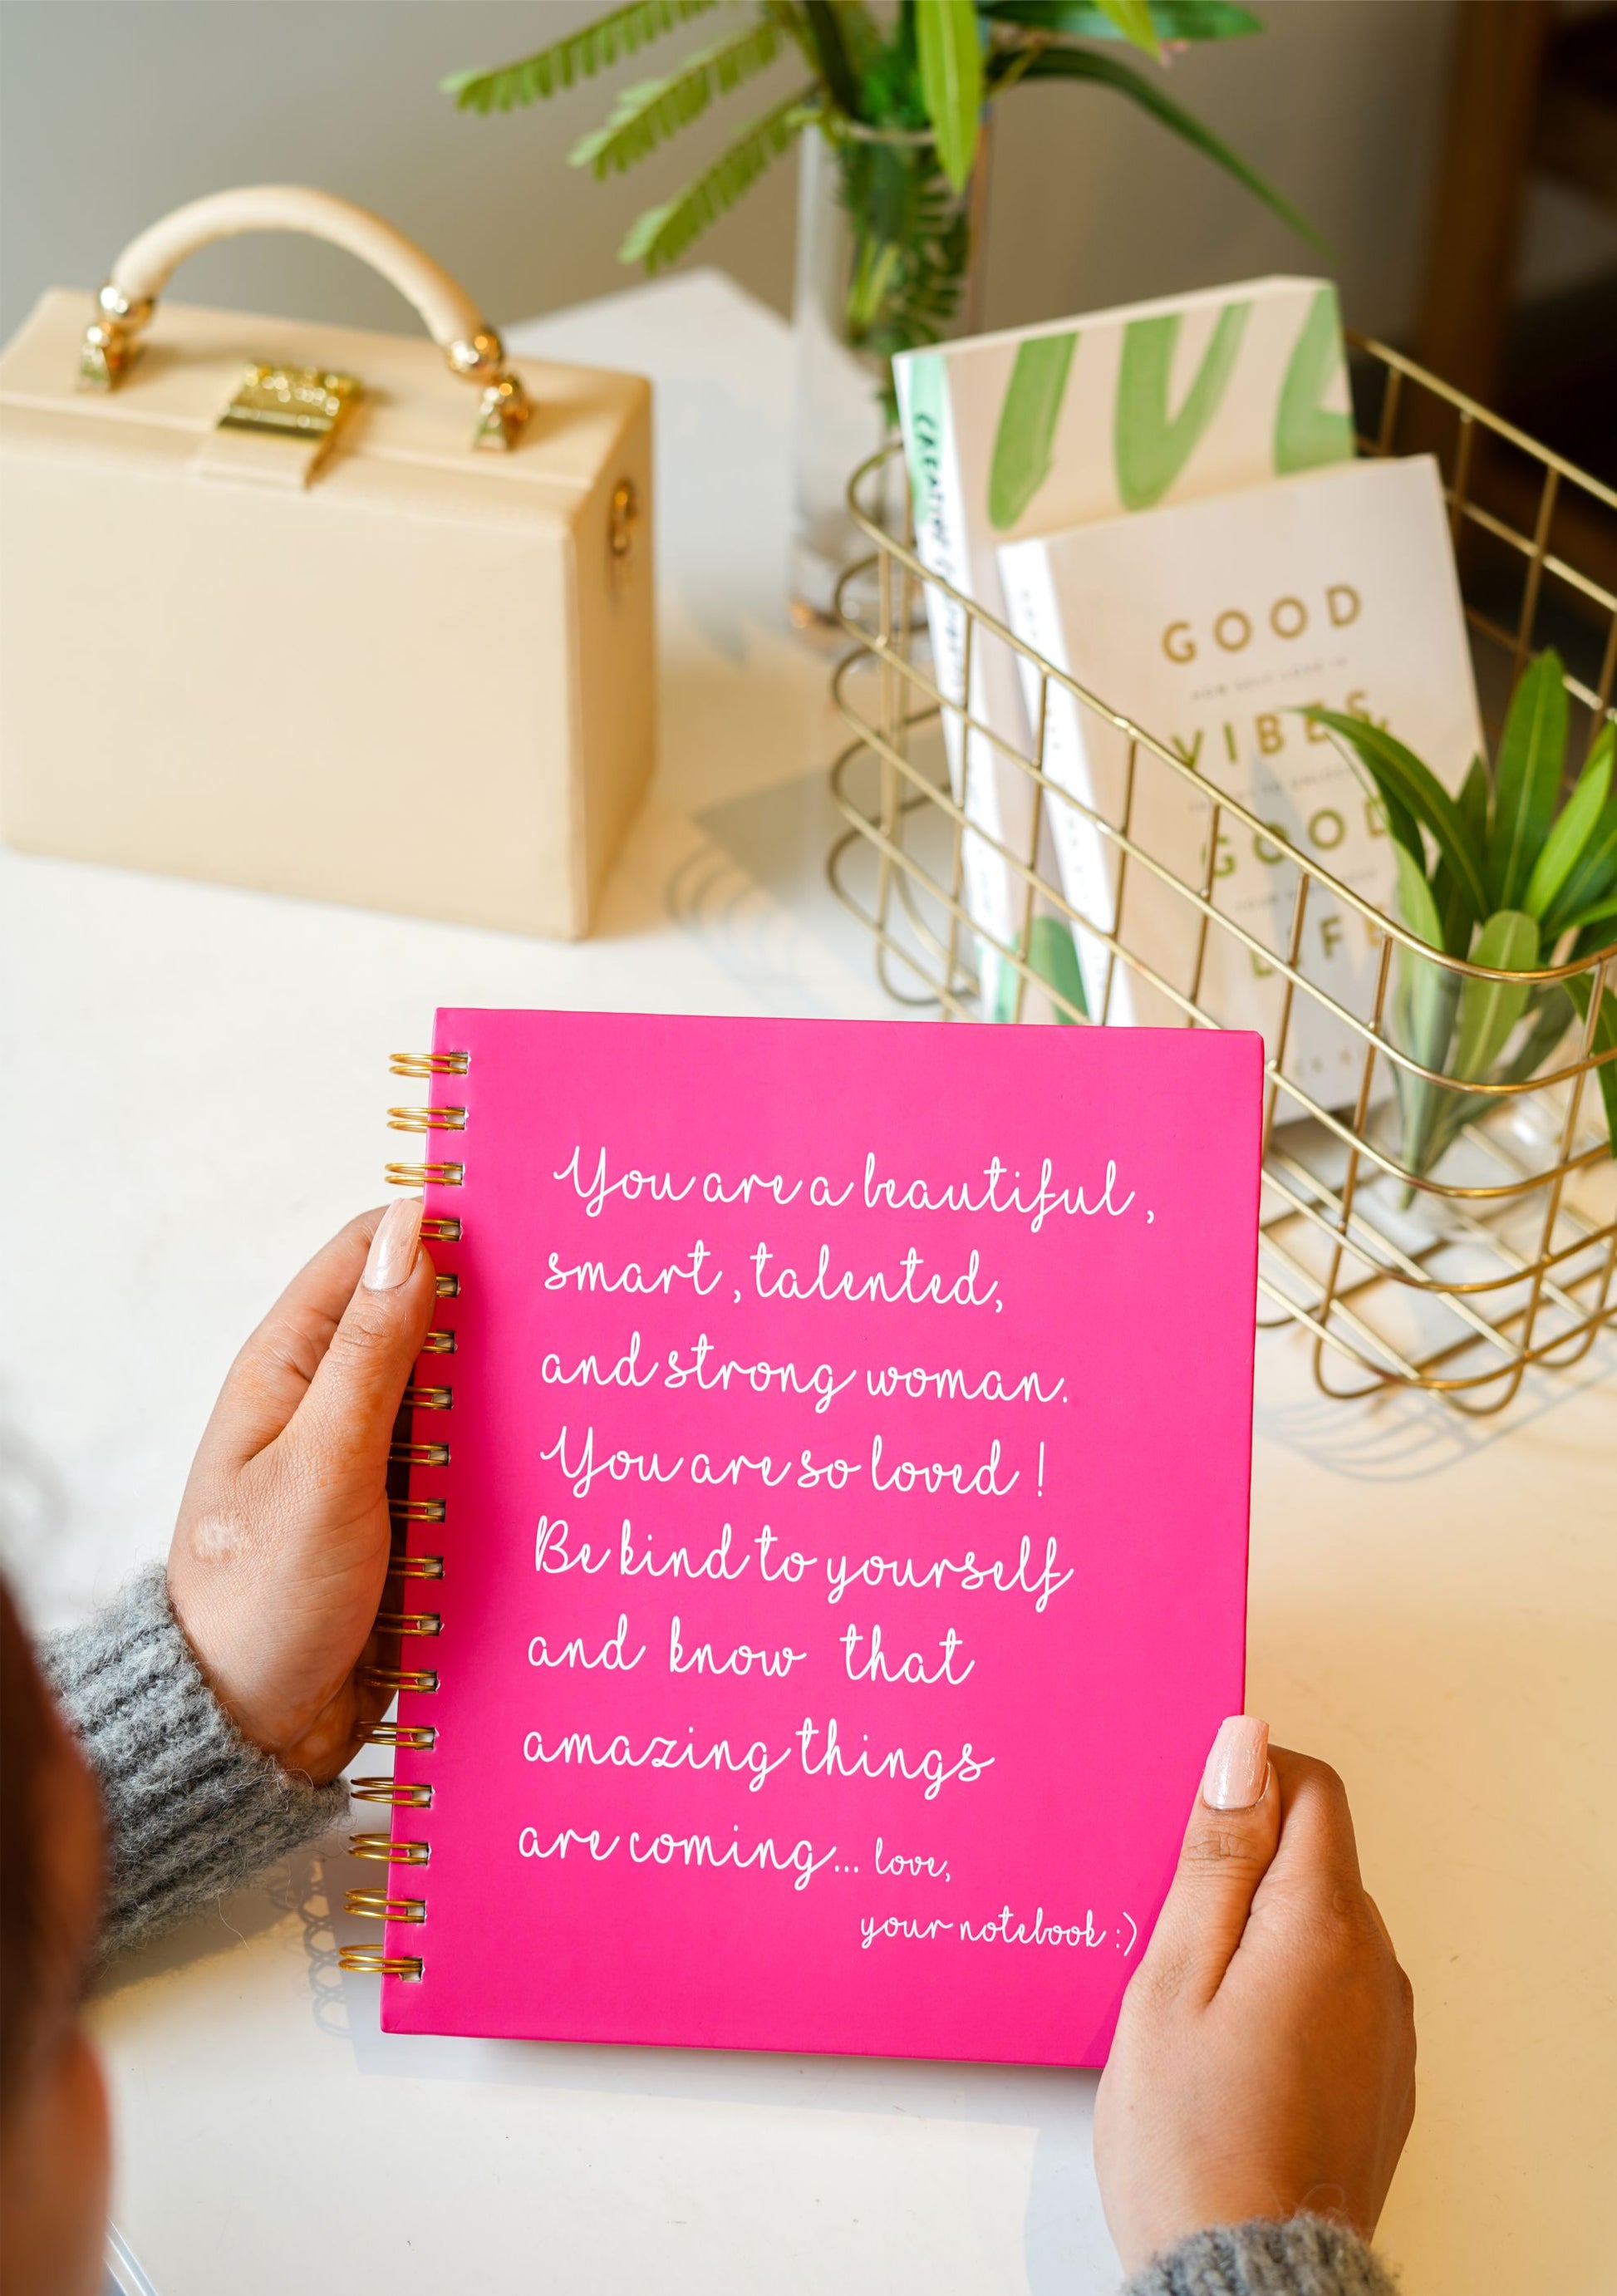 GOOD
VIBES,
GOOD
LIFE
You are a beautiful,
smart, talented,
and strong woman.
You are so loved!
Be kind to yourself
and know that
amazing things
are coming... love,
your notebook :)